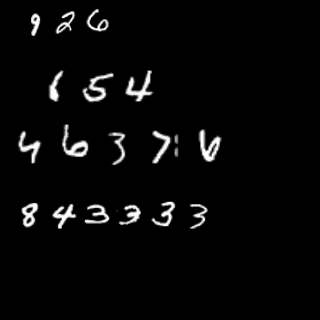 9 2 6
1 5 4
4 6 3 7 6
8 4 3 3 3 3